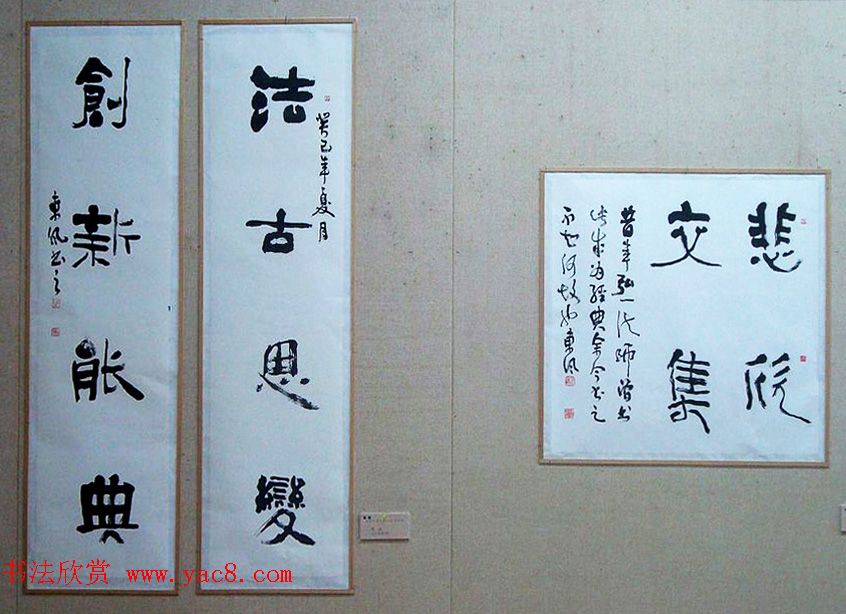 法古思變
癸巳年夏月
創新能典
東風書之
悲欣
交集
昔年弘一法師曾書
為經典余今書之
不知何故也東風
书法欣赏 www.yac8.com